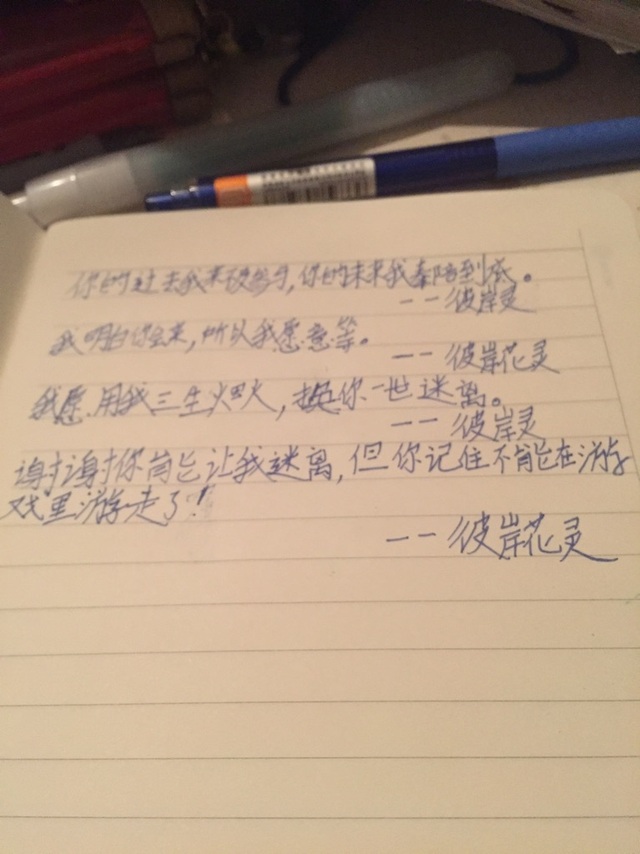 你的过去我来不及参与,你的未来我奉陪到底。
——彼岸灵
我明白你会来,所以我愿意等。
——彼岸花灵
我愿用我三生烟火,换你一世迷离。
——彼岸灵
谢谢你能让我迷离,但你记住不能在游
戏里游走了!
——彼岸花灵